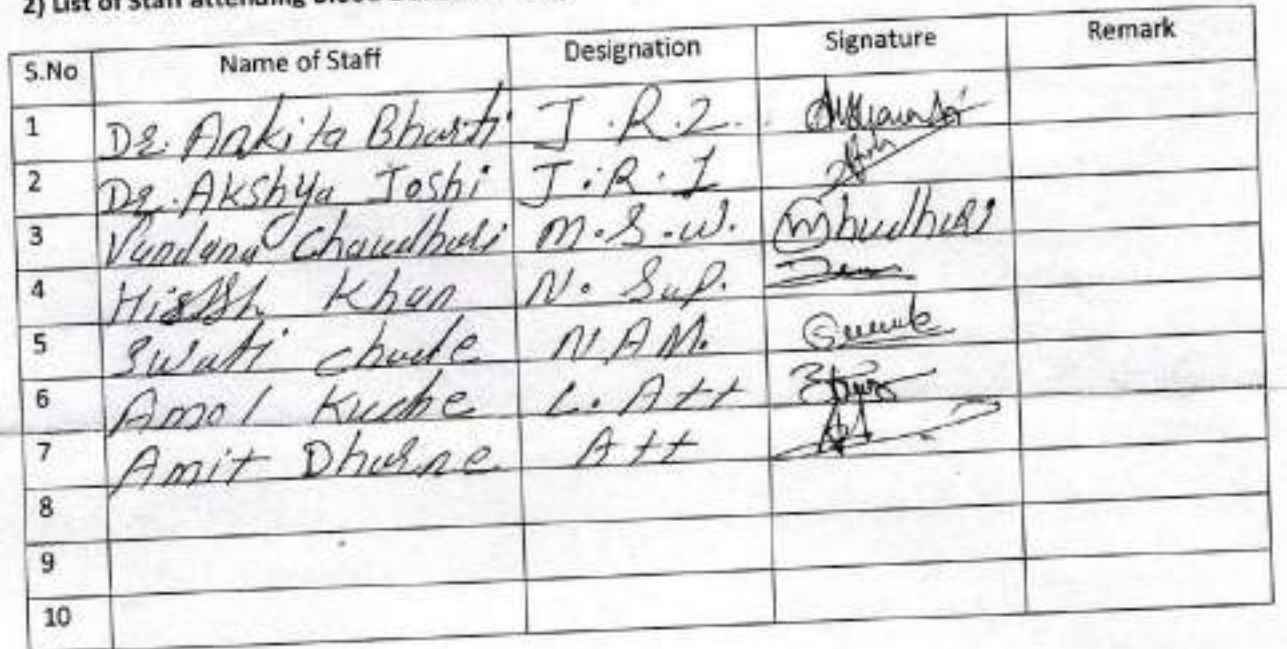 2) List of Staff attending Blood
S.No Name of Staff Designation Signature Remark
1 Dr. Ankita Bharti J.R.2.
2 Dr. Akshya Joshi J.R.1
3 Vandana Chaudhari M.S.W.
4 Khan N. Sup.
5 Swati chude N.A.M.
6 Amol Kuche L. Att
7 Amit Dhurne Att
8
9
10